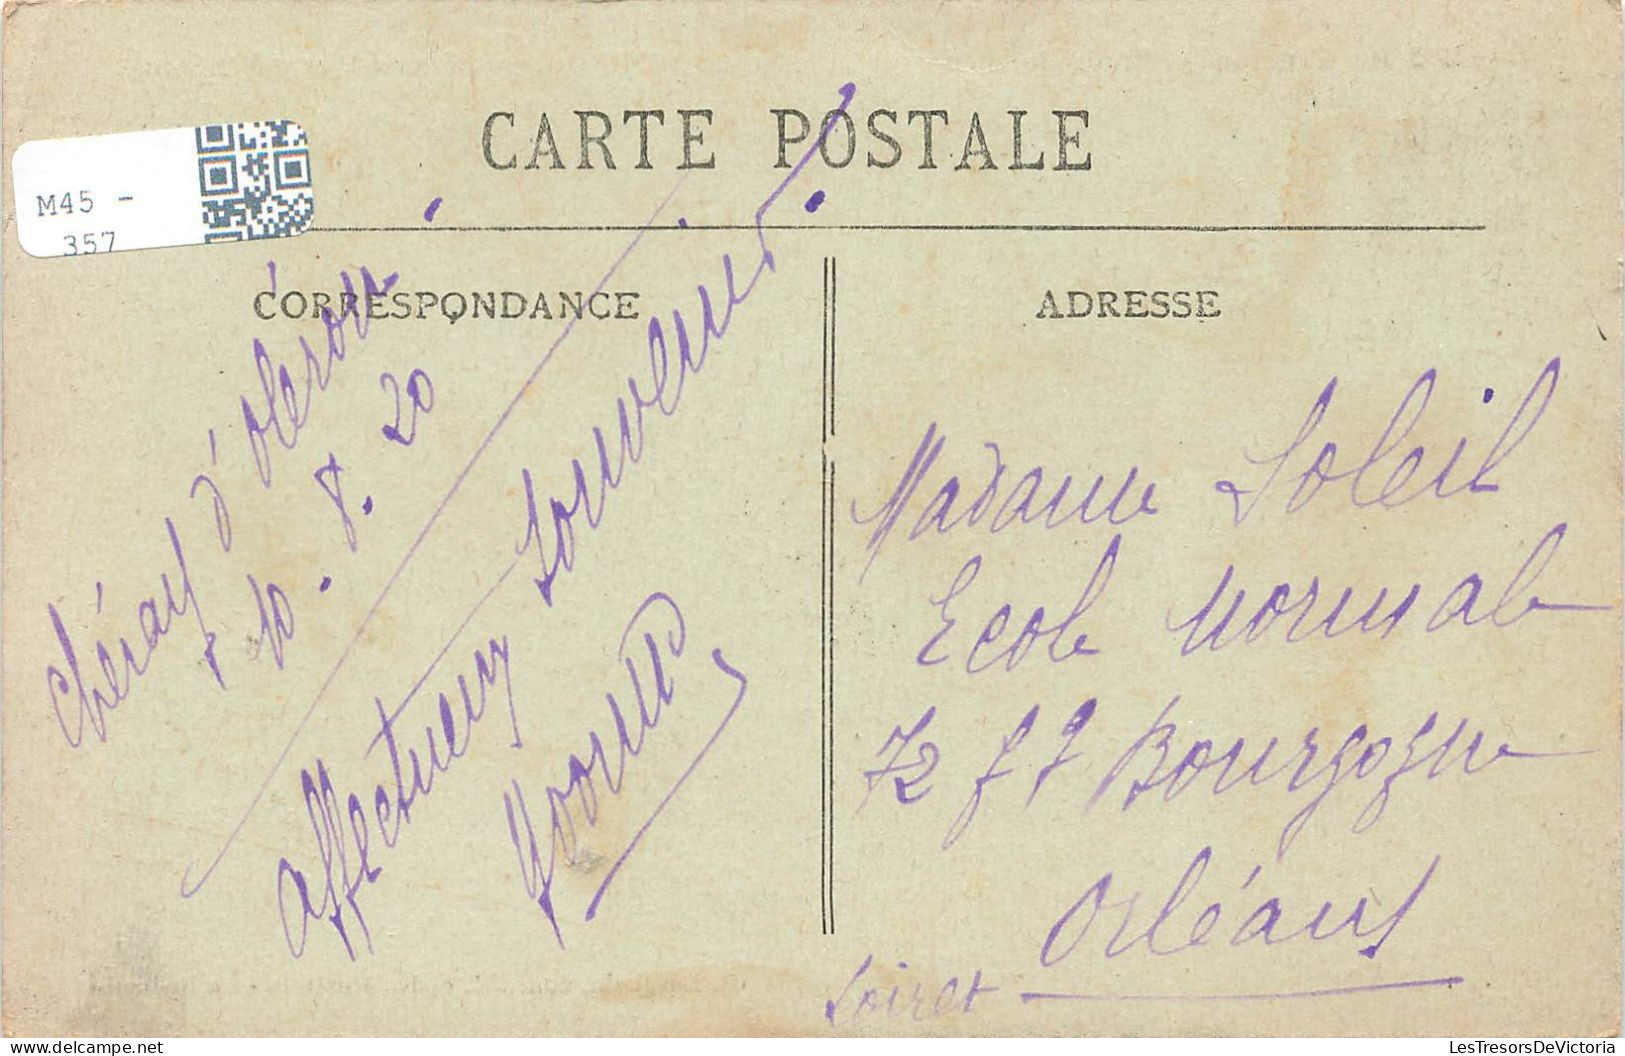 CARTE POSTALE
M45 -
357
CORRESPONDANCE
ADRESSE
Chéray d'oleron
10. 8. 20
Affectueux souvenir.
Yvonne
Madame Soleil
Ecole normale
72 Bourgogne
Orléans
Loiret
LesTresorsDeVictoria